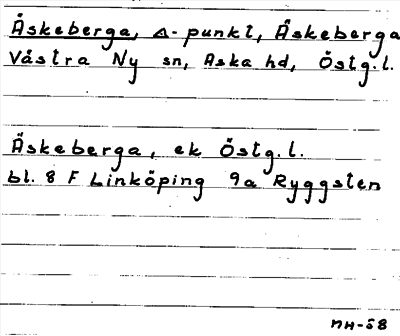 Åskeberga, Δ-punkt, Åskeberga
Västra Ny sn, Aska hd, Östg.l.
Åskeberga, ek Östg.l.
bl. 8 F Linköping 9a Ryggsten
MH-58